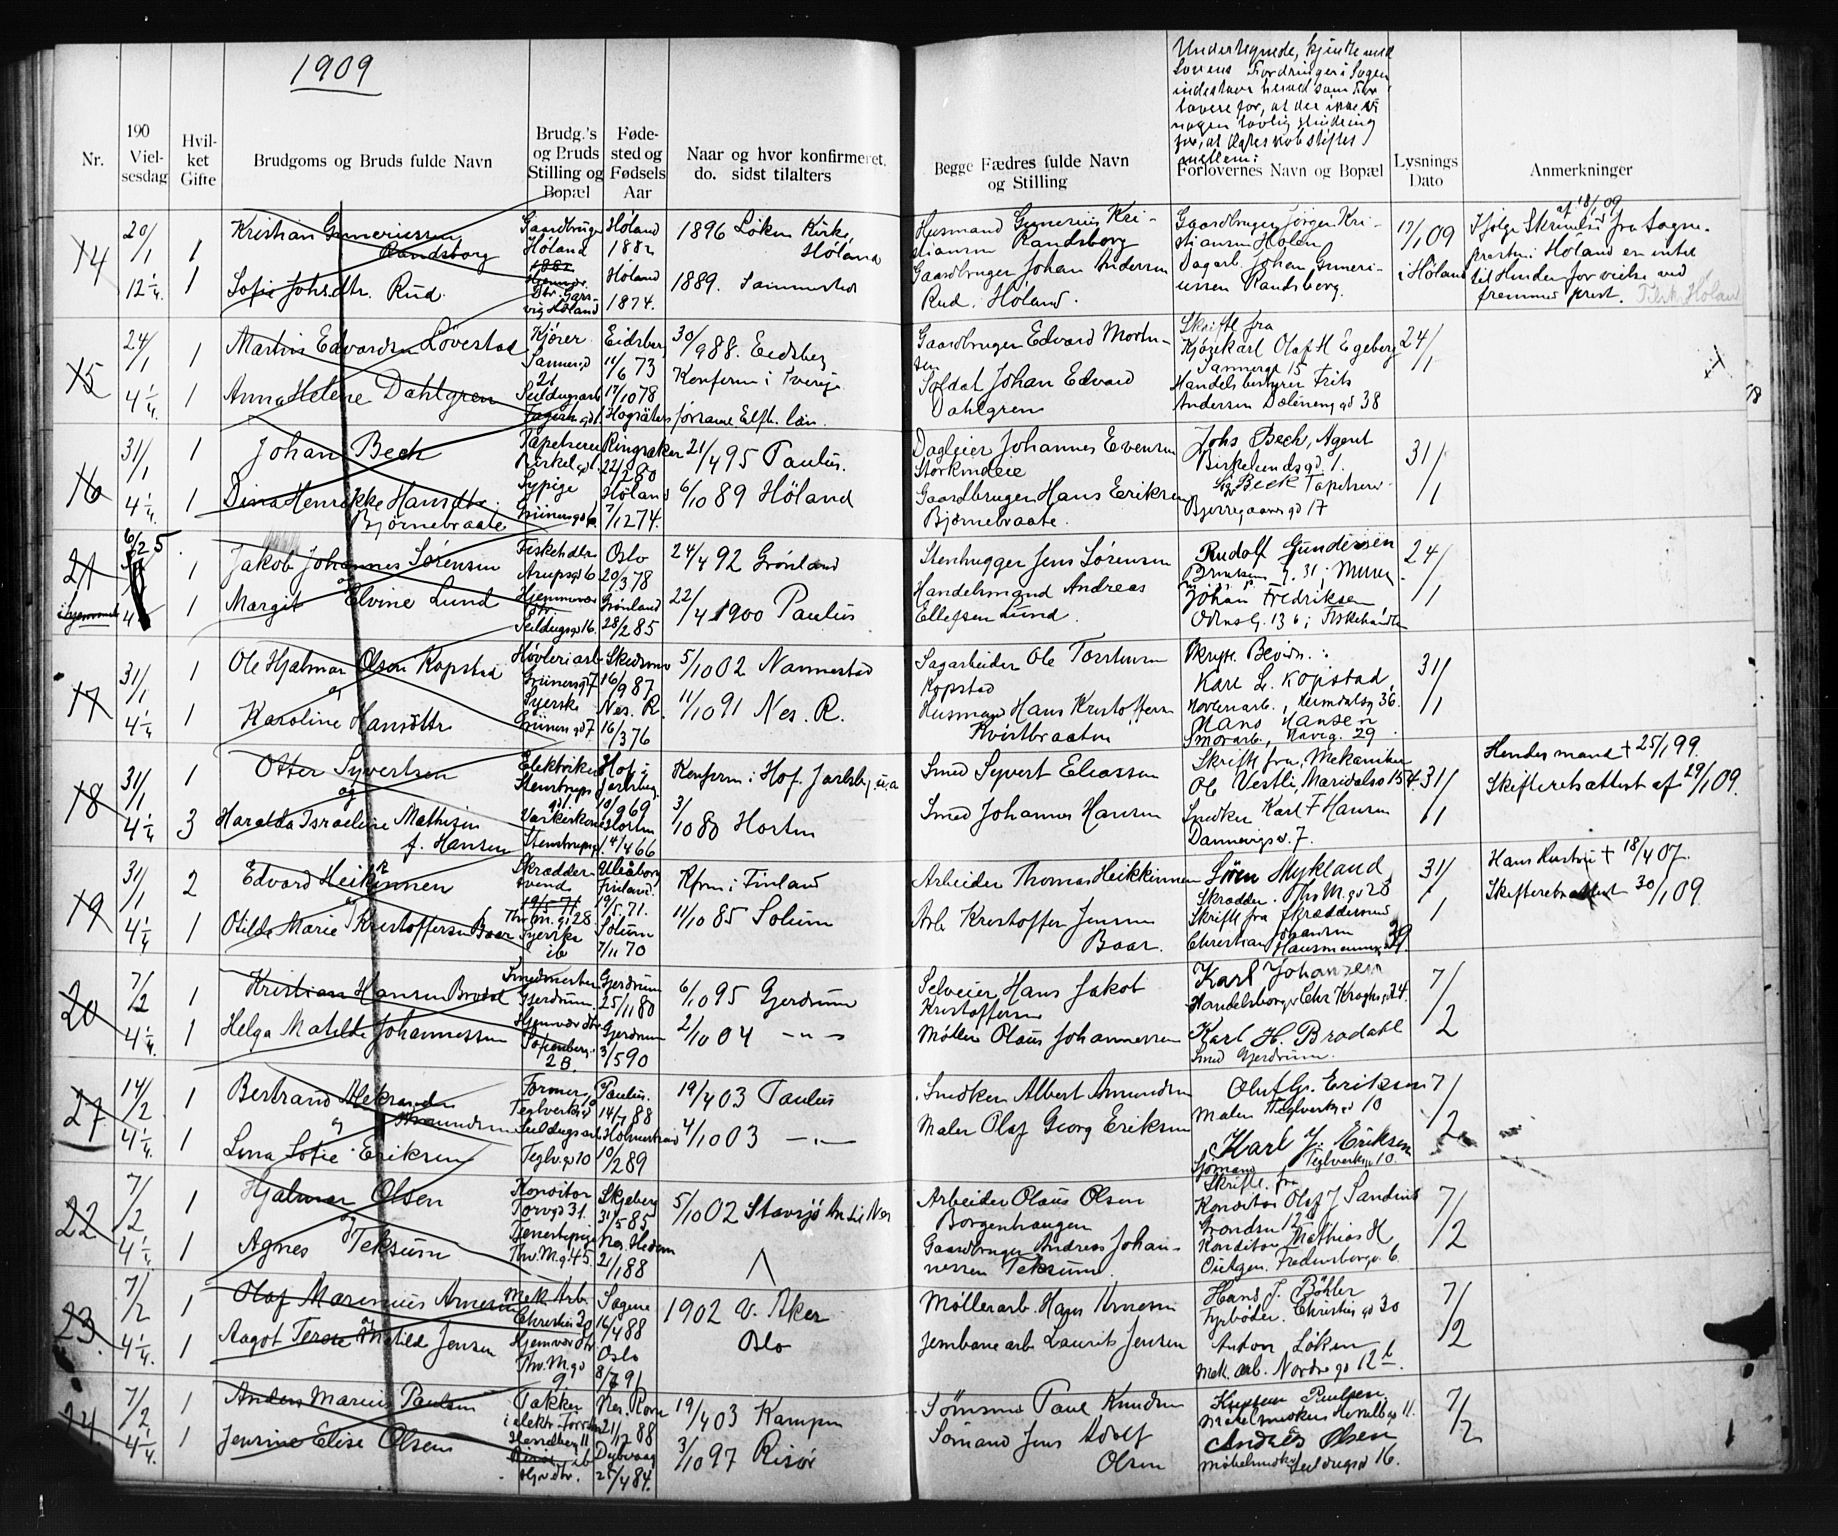 1909
Undertegnede, kjendte med
Lovens Fordringer i Sagen
indestaar herved som For
lovere for, at der ikke er
nogen lovlig Hindring
for, at Ægteskab stiftes
mellem:
Nr.
190
Viel-
sesdag
Hvil-
ket
Gifte
Brudgoms og Bruds fulde Navn
Brudg.'s
og Bruds
Stilling og
Bopæl
Føde-
sted og
Fødsels
Aar
Naar og hvor konfirmeret,
do. sidst tilalters
Begge Fædres fulde Navn
og Stilling
Forlovernes Navn og Bopæl
Lysnings
Dato
Anmerkninger
14
20/1
12 1/4
1
Kristian Guneriussen
Randsborg
1
Sofie Johsdtr. Rud
Gaardbruger
Høland
1882
Høland
1882
Høland
1874.
1896 Løken Kirke
Høland
1889. Sammesteds
Husmand Gunerius Kri-
stiansen Randsborg
Gaardbruger Johan Andersen
Rud. Høland.
Gaardbruger Jørgen Kri-
stiansen Holen
Dagarb. Johan Guneri-
ussen Randsborg.
17/1 09
i Høland
af 18/1 09
Ifølge Skrivelse fra Sogne-
presten i Høland er intet
til Hinder for vielse ved
fremmed prest.
15
24/1
4 1/4
1
Martin Edvardsen Løvestad
1
Anna Helene Dahlgren
Kjører
Sannergd
21
Seildugsarb
Eidsberg
11/6 73
17/10 78
30/9 88. Eidsberg
Konfirm i Sverige
Gaardbruger Edvard Morten-
sen
Soldat Johan Edvard
Dahlgren
Skriftl fra
Kjørekarl Olaf H Egeberg
Sannergd 15
Handelsbestyrer Frits
Andersen Dælenengd 38
24/1
16
31/1
4 1/4
1
Johan Bech
1
Dina Henrikke Hansdtr.
Bjørnebraate
Tapetserer
Sypige
Ringsaker
22/2 80
Høland
7/12 74.
21/4 95 Paulus.
6/10 89 Høland
Dagleier Johannes Evensen
Storkneie
Gaardbruger Hans Eriksen
Bjørnebraate.
Johs Bech, Agent
Birkelundsgd 1.
Sig Beck Tapetserer
Bjerregaardsgd 17
31/1
21
6/2 5
1
Jakob Johannes Sørensen
og
1
Margit Elvine Lund
Fiskehdlr
Arupsgd 6
Hjemmevær
dtr.
Seildugsgd 16.
Oslo
20/3 78
Grønland
28/2 85
24/4 92 Grønland
22/4 1900 Paulus
Stenhugger Jens Sørensen
Handelsmand Andreas
Ellefsen Lund.
Rudolf Gundersen
Johan Fredriksen
Odins G. 13 b; Fiskehandler
24/1
17
31/1
4 1/4
1
Ole Hjalmar Olsen Kopstad
og
1
Karoline Hansdtr
Høvleriarb
Grünersgd 7
Syerske
Grünersgd 7
Skedsmo
16/9 87
Nes. R.
16/3 76
5/10 02 Nannestad
11/10 91 Nes. R.
Sagarbeider Ole Torstensen
Kopstad
Husmand Hans Kristoffersen
Kvistbraaten
Skrftl. Bevidn.:
Karl L. Kopstad,
Høvleriarb.,
Hans Hansen
Smørarb., Haveg. 29
31/1
18
31/1
4 1/4
1
Otter Syvertsen
og
3
Haralda Israeline Mathisen
f. Hansen
Elektriker
Stenstrups
gd 1.
Vaskerkone
Stenstrupsgd 1.
Hof i
Jarlsberg.
10/9 69
Horten
4/4 66
Konfirm i Hof. Jarlsberg.
3/10 80 Horten
Smed Syvert Eliassen
Smed Johannes Hansen
Skriftl fra, Mekaniker
Ole Vestli, Maridalsv 154
Snedker Karl F Hansen
Dannevigsv. 7.
31/1
Hendes mand + 25/1 99.
Skifteretsattest af 29/1 09.
19
31/1
4 1/4
2
Edvard Heikkinnen
og
1
Otilde Marie Kristoffersen Baar
Skrædder
svend
19/5 71
Thv. M. gd 28
Syerske
ib
Uleåborg
Finland.
19/5 71.
Solum
7/11 70
Kfrm i Finland
11/10 85 Solum
Arbeider Thomas Heikkinnen
Arb Kristoffer Jensen
Baar.
Søren Mykland,
Skrædder. Ths M. gd 28
Skriftl fra Skræddersvend
Christian Johansen
Hausmannsgd 39
31/1
Hans Hustru + 18/4 07.
Skifteretsattest 30/1 09.
20
7/2
4 1/4
1
Kristian Hansen Brodal
1
Helga Matilde Johannessen
Smedmester
Gjerdrum
Hjemvær dtr
Sofienberg.
2 B.
Gjerdrum
25/11 80
Gjerdrum
3/5 90
6/10 95 Gjerdrum
2/10 04 - " -
Selveier Hans Jakob
Kristoffersen
Møller Olaus Johannessen
Karl Johansen
Handelsborger Chr Kroghsgd 24.
Karl H. Brodahl
Smed Gjerdrum.
7/2
27
14/2
4 1/4
1
Bertrand Aleksander
og Amundsen
1
Lina Sofie Eriksen
Former
Teglverksgd 10
Seildugsarb
Teglv. gd 10
Paulus.
14/7 88
Holmestrand
10/2 89
19/4 03 Paulus
4/10 03 - " -
Snedker Albert Amundsen
Maler Olaf Georg Eriksen
Oluf G. Eriksen
Maler Teglverksgd 10
Karl J. Eriksen
Sjømand Teglverksgd 10.
7/2
22
7/2
4 1/4
1
Hjalmar Olsen
og
1
Agnes Teksum
Konditor
Torvgd 31.
Tenestepige
Thv. M. g. 45.
Skjeberg
31/5 85
Nes. Hedem
21/1 88
5/10 02 Stavsjø An. til Nes
Arbeider Olaus Olsen
Borgenhaugen
Gaardbruger Andreas Johan-
nessen Teksum.
Skriftl. fra
Konditor Olaf J Sandnes
Grønlsn 12
Konditor Mathias H
7/2
23.
7/2
4 1/4
1
Olaf Marinius Arnesen
1
Aagot Terese Matilde Jensen
Mek. Arb.
Christiesgd 30
Hjemvær dtr
Thv. M. gd
9
Sagene
16/4 88
Oslo
8/7 91
1902 V. Aker
Oslo
Møllerarb. Hans Arnesen
Jernbanearb Laurits Jensen
Hans J. Böhler
Fyrbøder. Christies gd 30
Anton Löken
Mek. arb. Nordregd 12 b.
7/2
24.
7/2
4 1/4
1
Anders Marius Paulsen
1
Jensine Elise Olsen
Pakker
ib
Nes. Rom
21/12 88
Dybvaag
25/4 84.
19/4 03 Kampen
3/10 97 Risør
Sømand Paul Knudsen
Sømand Jens Adolf
Olsen
Paulsen
Andreas Olsen
Møbelsnedker Seildugsgd 16.
7/2